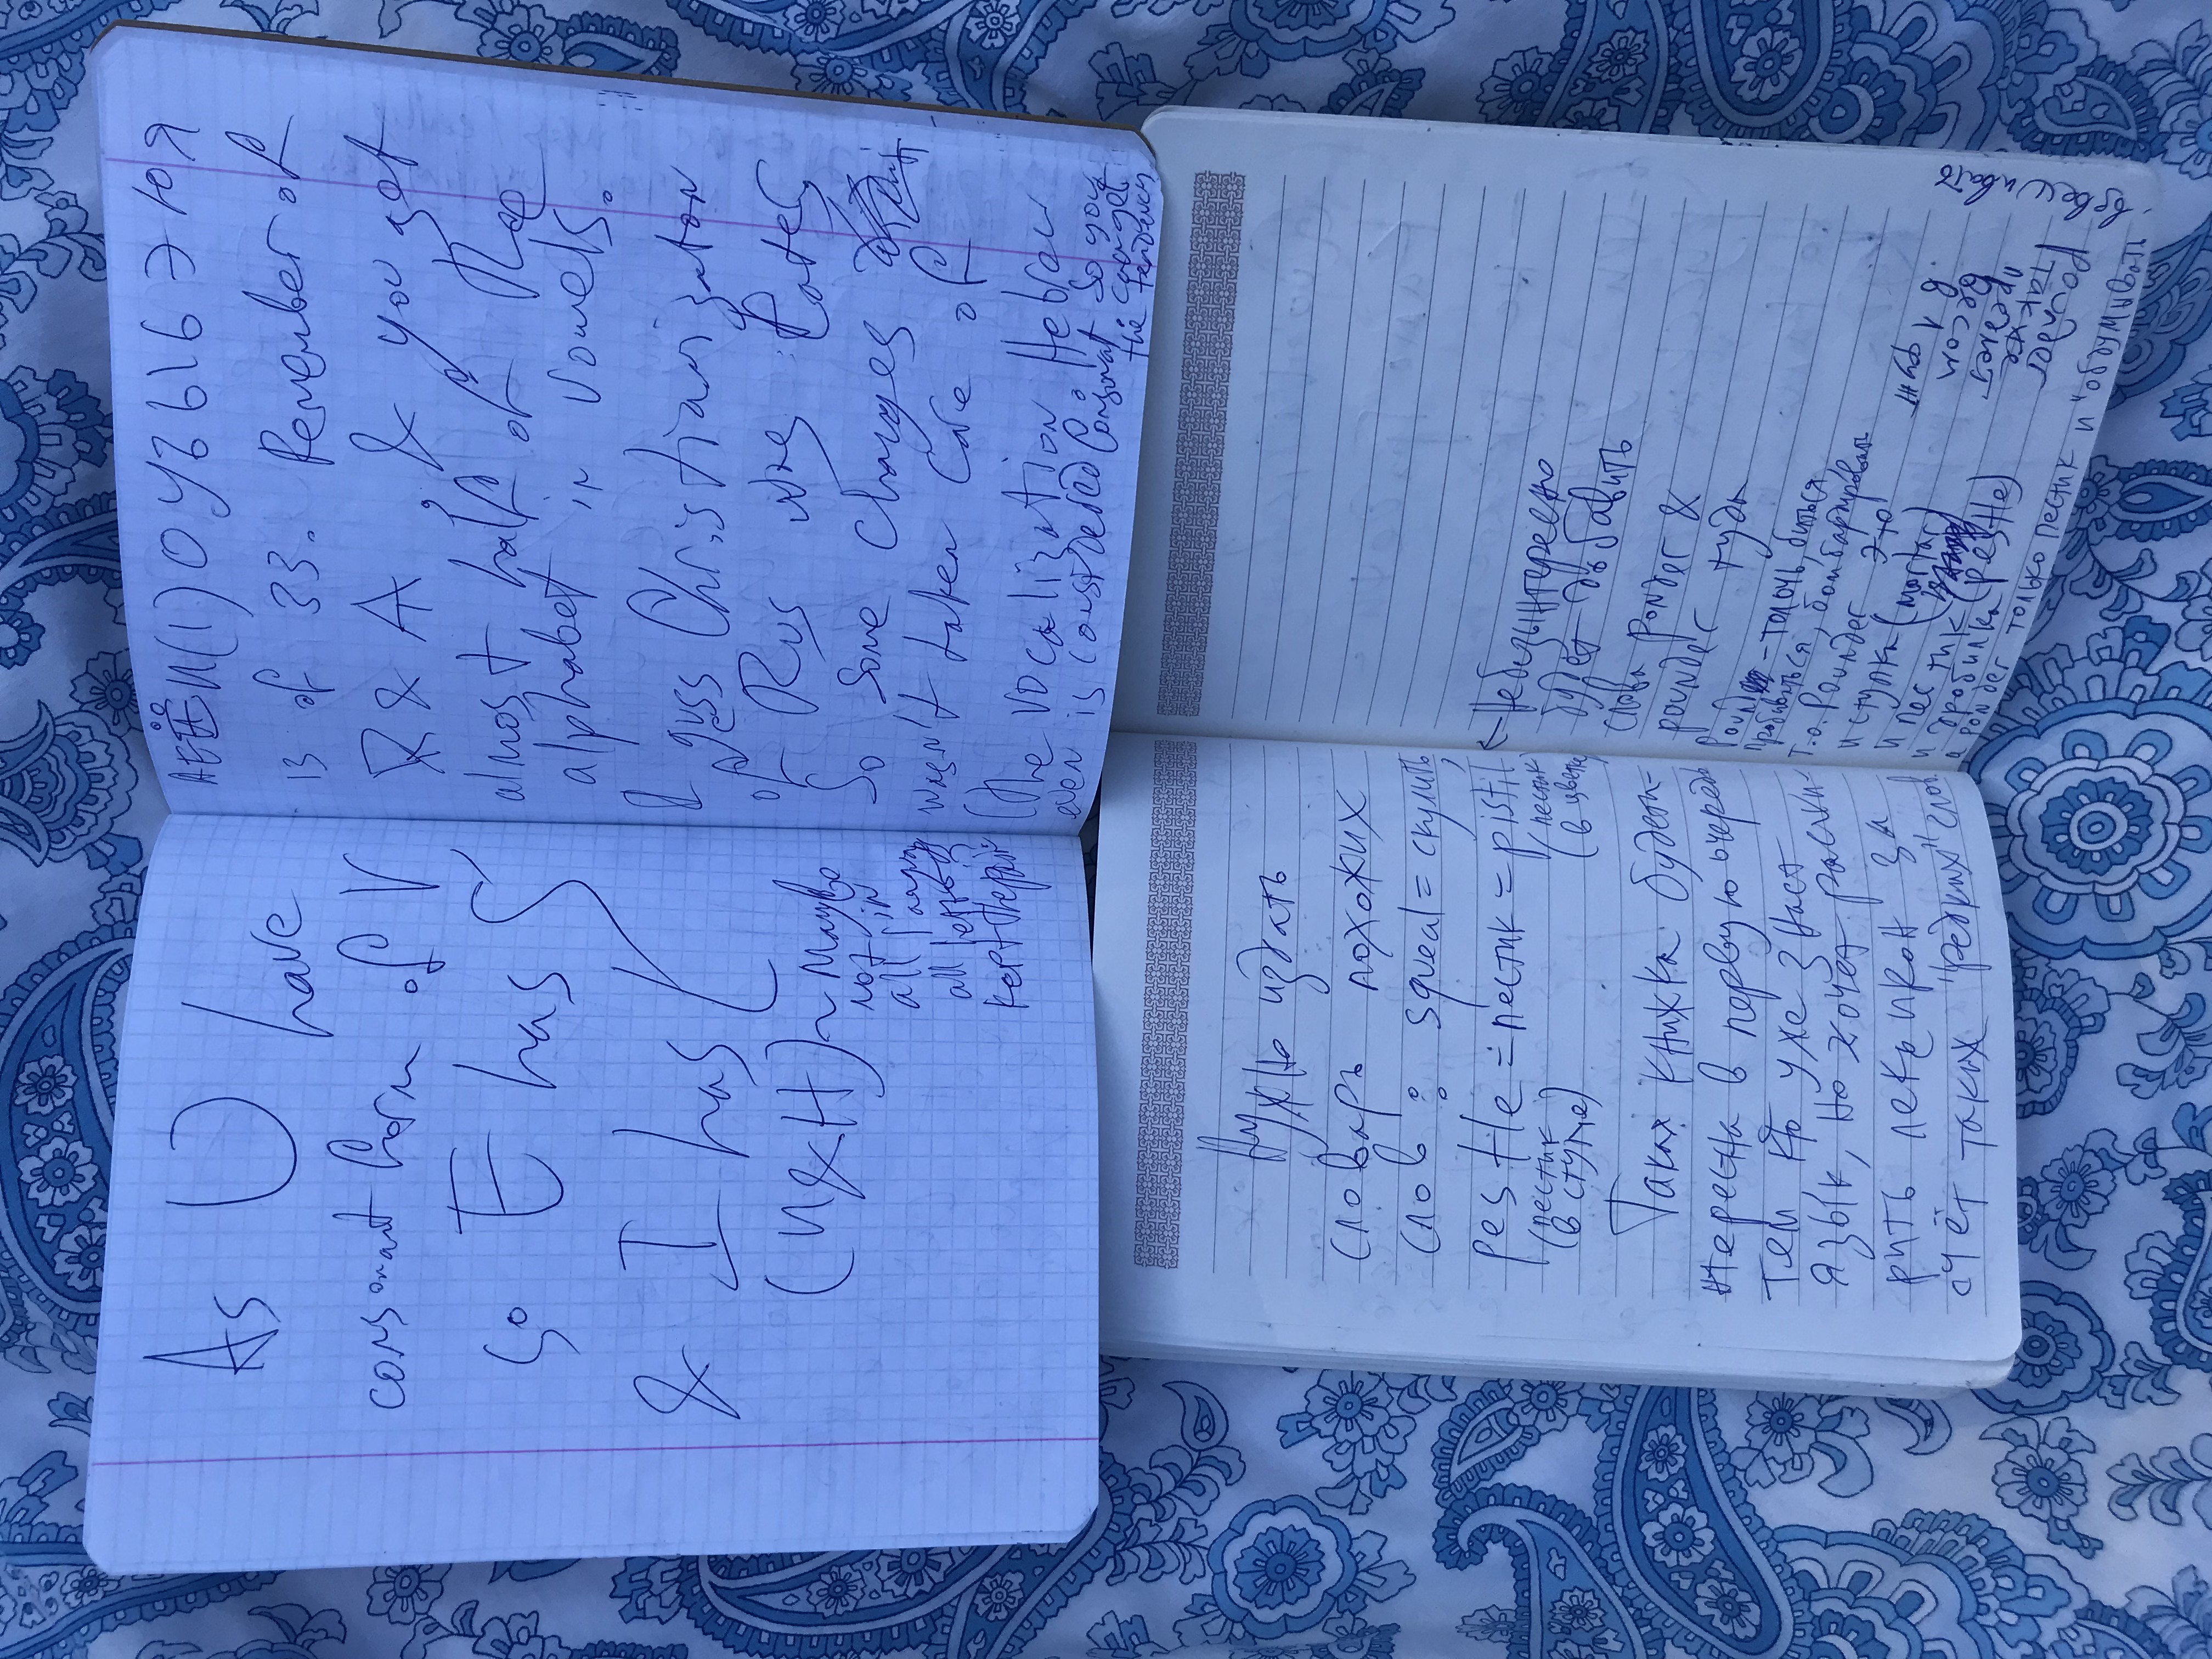 As U have
consonant form of V
so E has S
& I has (
(И & H) ~ Maybe
not in
all languages
all letters
kept the pair
АЕЁИ(I) О У Ъ Ы Ь Э Ю Я
13 of 33. Remember of
Я & A, & you get
almost half of the
alphabet in vowels.
I guess Christianization
of Rus was later,
So some changes
wasn't taken care of
(the vocalization. Hebrew
even is considered Consonat. So you
can get
the tendency
Нужно издать
словарь похожих
слов : squeal = скулить,
pestle = пестик = pistil
(пестик (пестик
в ступе) в цветке)
Такая книжка будет ин-
тересна в первую очередь
тем, кто уже знает
язык, но хочет расши-
рить лексикон за
счёт таких "редких" слов.
← Небезынтересно
будет добавить
слова ponder &
pounder туда
Pound – толочь, биться,
пробиваться, бомбардировать
т.о. Pounder это
и ступка (mortar)
и пестик (pestle)
и дробилка
а ponder только пестик и
взвешивать
Pounder
также
предмет
весом
в 1 фунт